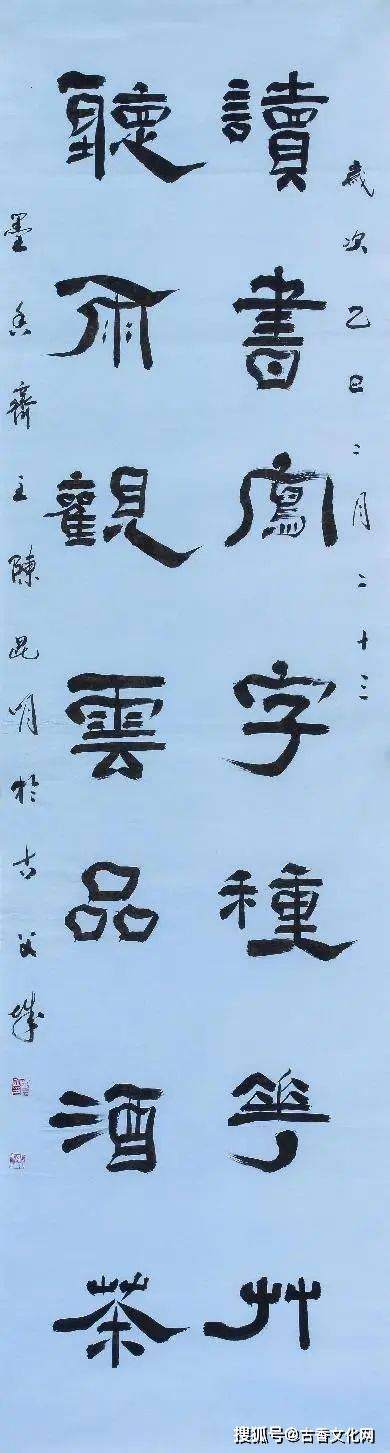 歲次乙巳二月二十三
讀書寫字種華草
聽雨觀雲品酒茶
墨香齋主陳昆明於古父城
搜狐号@古香文化网